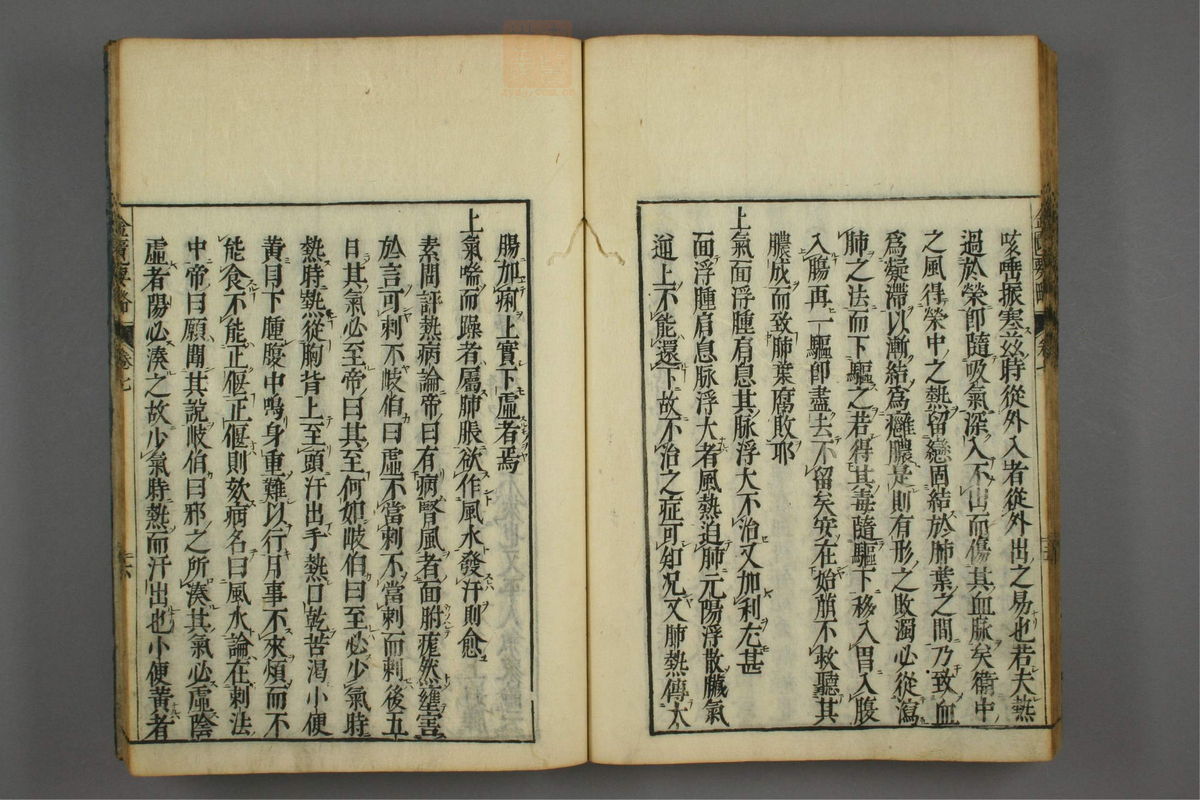 咳嗽振寒玆時從外入者從外出之易也若夫熱
過於榮卽隨吸氣深入不出而傷其血脉矣衛中
之風得榮中之熱留戀固結於肺葉之間乃致血
爲凝滯以漸結爲癰膿是則有形之敗濁必從瀉
肺之法而下驅之若得其毒隨驅下移入胃入腹
入腸再一驅卽盡去不留矣安在始萠不救聽其
膿成而致肺葉腐敗耶
上氣面浮腫肩息其脉浮大不治又加利尤甚
面浮腫肩息脉浮大者風熱迫肺元陽浮散臟氣
逆上不能還下故不治之症可知况又肺熱傳大
腸加痢上實下虛者焉
上氣喘而躁者屬肺脹欲作風水發汗則愈
素問評熱病論帝曰有病腎風者面胕痝然壅害
於言可刺不岐伯曰虛不當刺不當刺而刺後五
日其氣必至帝曰其至何如岐伯曰至必少氣時
熱時熱從胸背上至頭汗出手熱口乾苦渴小便
黃目下腫腹中鳴身重難以行月事不來煩而不
能食不能正偃正偃則欬病名曰風水論在刺法
中帝曰願聞其說岐伯曰邪之所湊其氣必虛陰
虛者陽必湊之故少氣時熱而汗出也小便黃者